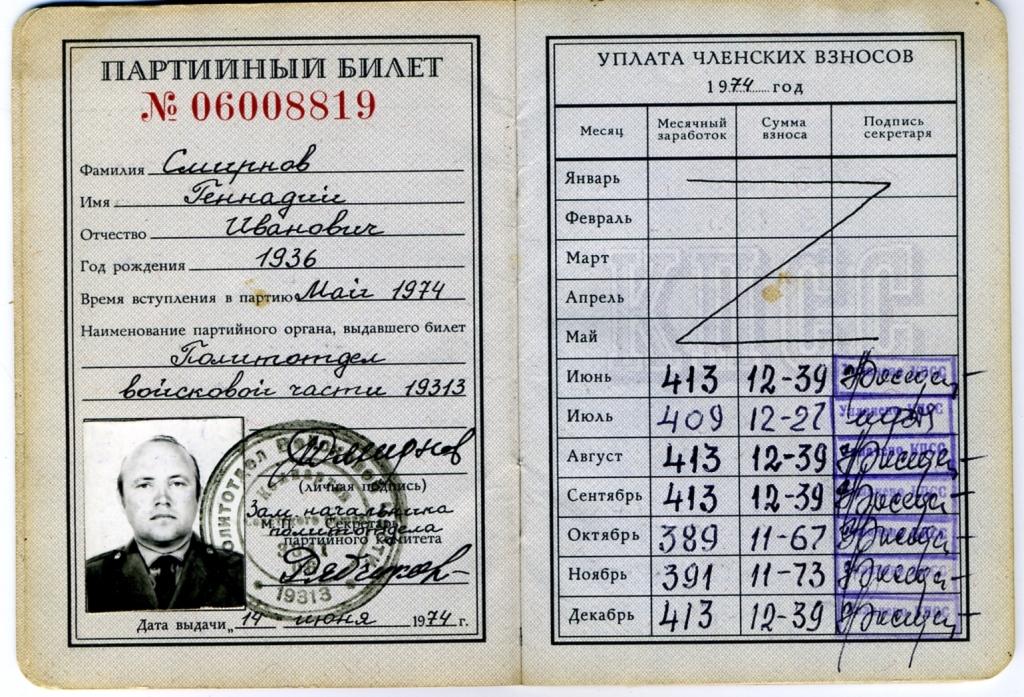 ПАРТИЙНЫЙ БИЛЕТ
№ 06008819
Фамилия Смирнов
Имя Геннадий
Отчество Иванович
Год рождения 1936
Время вступления в партию Май 1974
Наименование партийного органа, выдавшего билет
Политотдел
войсковой части 19313
Смирнов
(личная подпись)
Зам. начальника
М. П. Секретарь
политотдела
партийного комитета
19313
Дата выдачи „14 июня 1974 г.
УПЛАТА ЧЛЕНСКИХ ВЗНОСОВ
1974 год
Месяц Месячный заработок Сумма взноса Подпись секретаря
Январь
Февраль
Март
Апрель
Май
КПСС
Июнь 413 12-39
Июль 409 12-27
Август 413 12-39
Сентябрь 413 12-39
Октябрь 389 11-67
Ноябрь 391 11-73
Декабрь 413 12-39